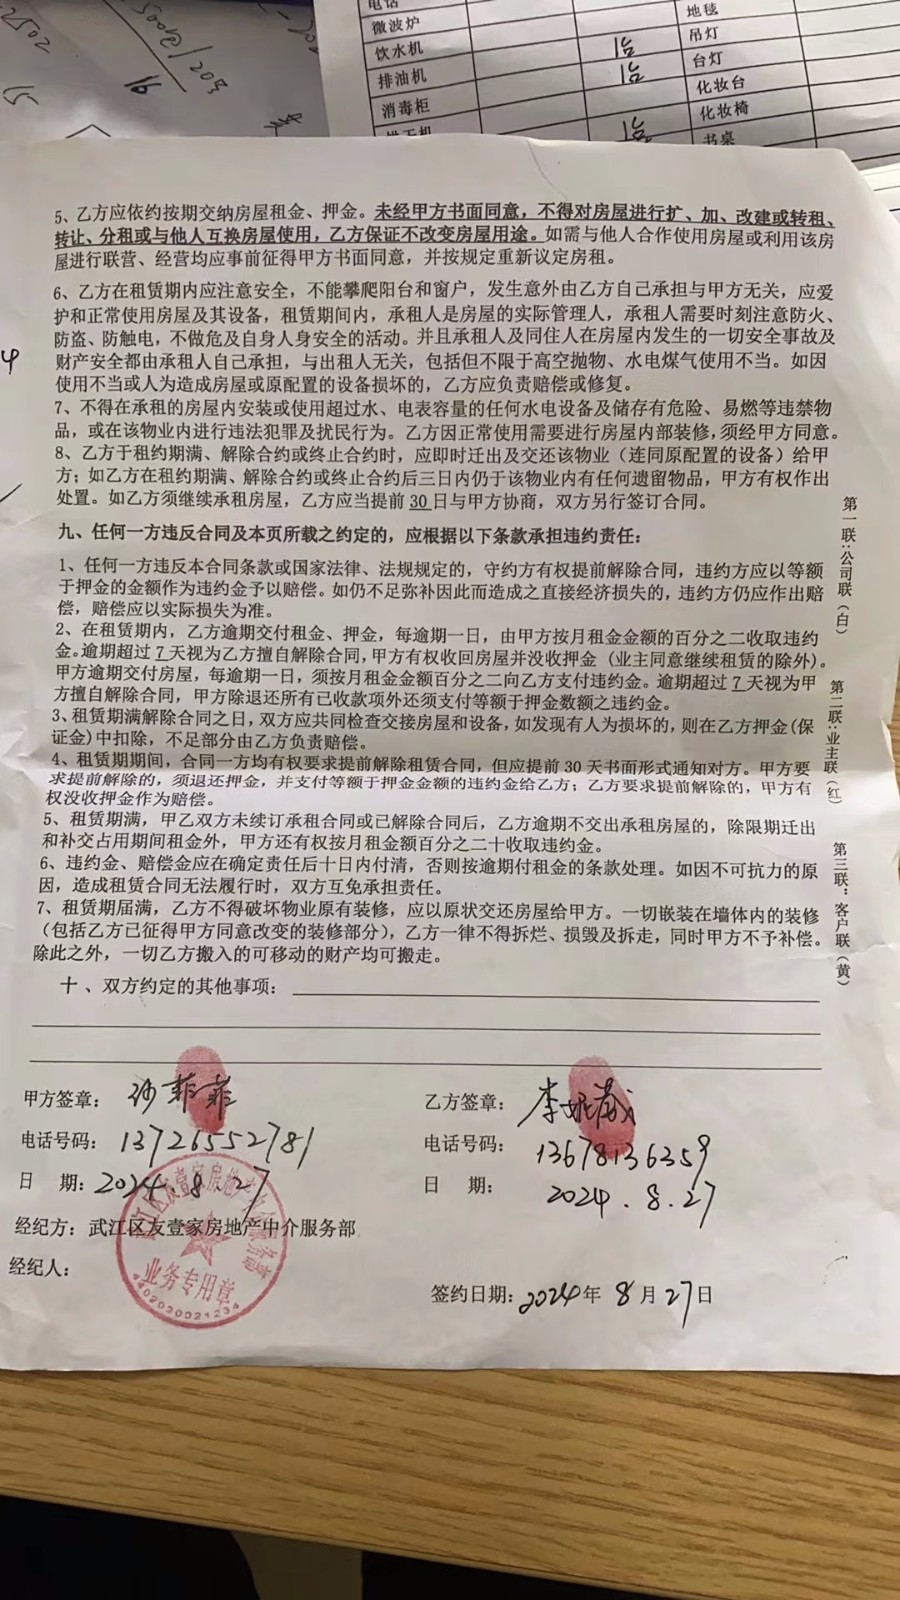 电话
微波炉
饮水机
排油机
消毒柜
烘干机
台
台
台
地毯
吊灯
台灯
化妆台
化妆椅
书桌
5、乙方应依约按期交纳房屋租金、押金。未经甲方书面同意，不得对房屋进行扩、加、改建或转租、
转让、分租或与他人互换房屋使用，乙方保证不改变房屋用途。如需与他人合作使用房屋或利用该房
屋进行联营、经营均应事前征得甲方书面同意，并按规定重新议定房租。
6、乙方在租赁期内应注意安全，不能攀爬阳台和窗户，发生意外由乙方自己承担与甲方无关，应爱
护和正常使用房屋及其设备，租赁期间内，承租人是房屋的实际管理人，承租人需要时刻注意防火、
防盗、防触电，不做危及自身人身安全的活动。并且承租人及同住人在房屋内发生的一切安全事故及
财产安全都由承租人自己承担，与出租人无关，包括但不限于高空抛物、水电煤气使用不当。如因
使用不当或人为造成房屋或原配置的设备损坏的，乙方应负责赔偿或修复。
7、不得在承租的房屋内安装或使用超过水、电表容量的任何水电设备及储存有危险、易燃等违禁物
品，或在该物业内进行违法犯罪及扰民行为。乙方因正常使用需要进行房屋内部装修，须经甲方同意。
8、乙方于租约期满、解除合约或终止合约时，应即时迁出及交还该物业（连同原配置的设备）给甲
方；如乙方在租约期满、解除合约或终止合约后三日内仍于该物业内有任何遗留物品，甲方有权作出
处置。如乙方须继续承租房屋，乙方应当提前30日与甲方协商，双方另行签订合同。
九、任何一方违反合同及本页所载之约定的，应根据以下条款承担违约责任：
1、任何一方违反本合同条款或国家法律、法规规定的，守约方有权提前解除合同，违约方应以等额
于押金的金额作为违约金予以赔偿。如仍不足弥补因此而造成之直接经济损失的，违约方仍应作出赔
偿，赔偿应以实际损失为准。
2、在租赁期内，乙方逾期交付租金、押金，每逾期一日，由甲方按月租金金额的百分之二收取违约
金。逾期超过7天视为乙方擅自解除合同，甲方有权收回房屋并没收押金（业主同意继续租赁的除外）。
甲方逾期交付房屋，每逾期一日，须按月租金金额百分之二向乙方支付违约金。逾期超过7天视为甲
方擅自解除合同，甲方除退还所有已收款项外还须支付等额于押金数额之违约金。
3、租赁期满解除合同之日，双方应共同检查交接房屋和设备，如发现有人为损坏的，则在乙方押金(保
证金)中扣除，不足部分由乙方负责赔偿。
4、租赁期期间，合同一方均有权要求提前解除租赁合同，但应提前30天书面形式通知对方。甲方要
求提前解除的，须退还押金，并支付等额于押金金额的违约金给乙方；乙方要求提前解除的，甲方有
权没收押金作为赔偿。
5、租赁期满，甲乙双方未续订承租合同或已解除合同后，乙方逾期不交出承租房屋的，除限期迁出
和补交占用期间租金外，甲方还有权按月租金额百分之二十收取违约金。
6、违约金、赔偿金应在确定责任后十日内付清，否则按逾期付租金的条款处理。如因不可抗力的原
因，造成租赁合同无法履行时，双方互免承担责任。
7、租赁期届满，乙方不得破坏物业原有装修，应以原状交还房屋给甲方。一切嵌装在墙体内的装修
（包括乙方已征得甲方同意改变的装修部分），乙方一律不得拆烂、损毁及拆走，同时甲方不予补偿。
除此之外，一切乙方搬入的可移动的财产均可搬走。
十、双方约定的其他事项：
第一联：公司联（白）
第二联：业主联（红）
第三联：客户联（黄）
甲方签章：
电话号码：13726552781
日 期：2024.8.27
经纪方：武江区友壹家房地产中介服务部
经纪人：
武江区友壹家房地产中介服务部
业务专用章
4402030021234
乙方签章：
电话号码：13678136359
日 期：2024.8.27
签约日期：2024年8月27日